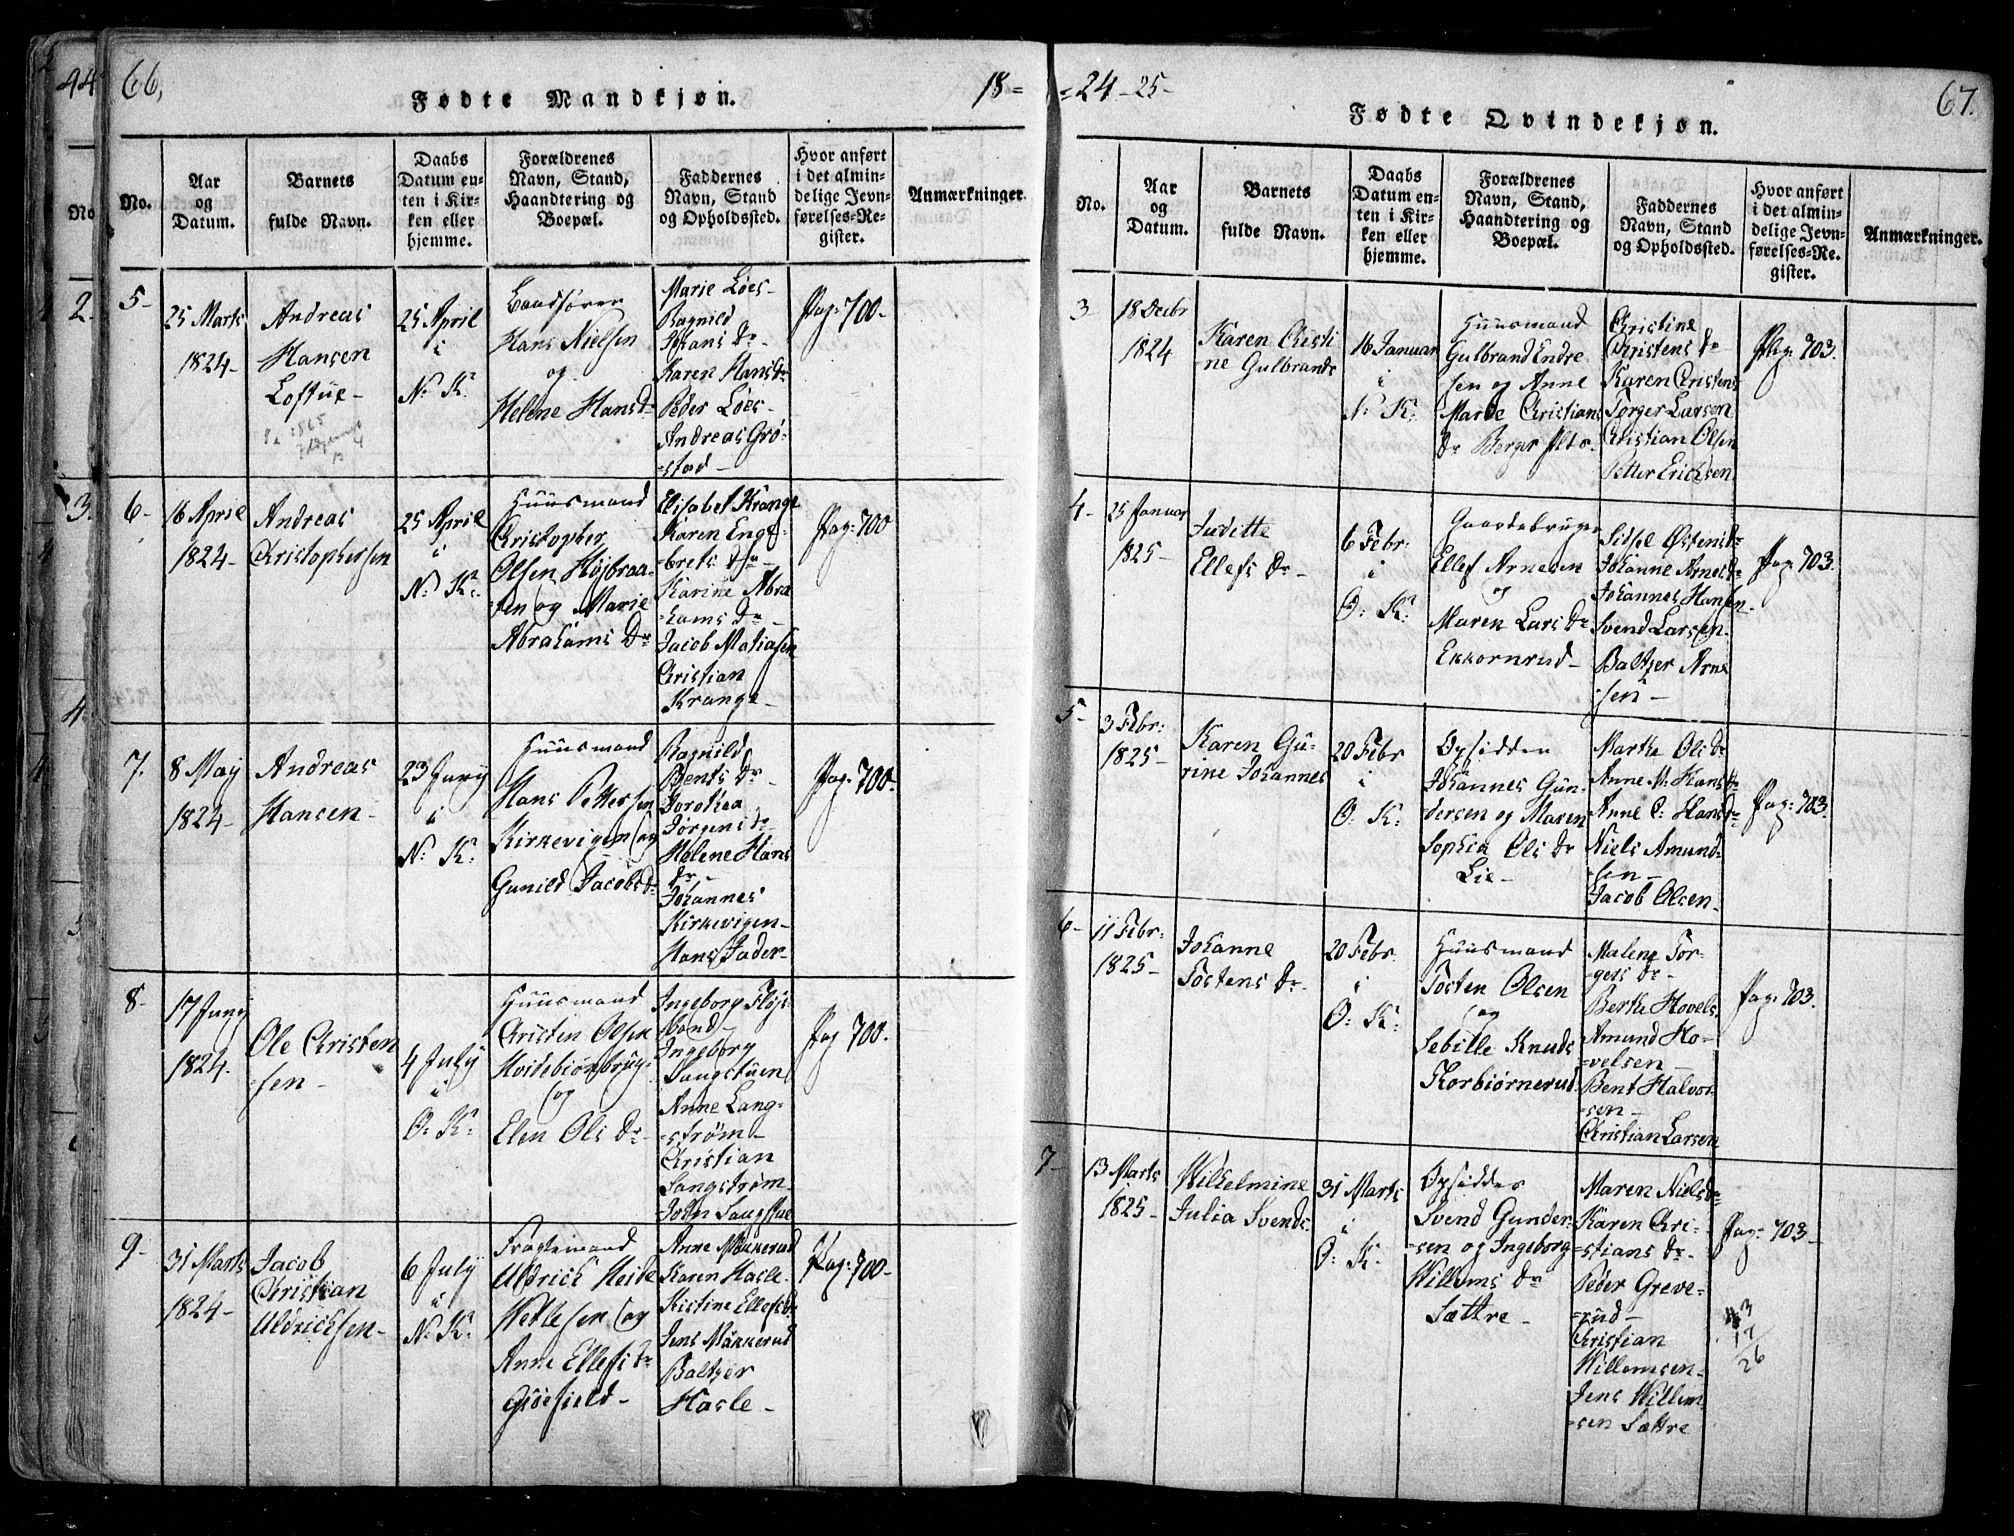 66,
Fødte Mandkjøn.
18=
No.
Aar
og
Datum.
Barnets
fulde Navn.
Daabs
Datum en-
ten i Kir-
ken eller
hjemme.
Forældrenes
Navn, Stand,
Haandtering og
Boepæl.
Faddernes
Navn, Stand
og Opholdssted.
Hvor anført
i det almin-
delige Jevn-
førelses-Re-
gister.
Anmærkninger.
5-
25 Marts
1824-
Andreas
Hansen
25 April
i
N: K:
Hans Nielsen
og
Helene Hansdr
Marie Löes-
Ragnild
Karen Hansdr
Peder Löes-
Andreas Grö-
=stad-
Pag: 700-
6-
16 April
1824-
Andreas
Christophersen
25 April
i
N: K:
Huusmand
Christopher
Olsen Höjbraa-
=ten og Marie
Abrahams Dr
Elisabet Krange
Karen Enge-
=brets dr-
Karine Abra
=hams Dr-
Jacob Matiasen
Christian
Krange-
Pag: 700
7.
8 May
1824-
Andreas
Hansen-
23 Juny
i
N: K:
Huusmand
Hans Pettersen
Kirkevigen og
Gunild Jacobsdr
Ragnild
Bents Dr
Dorothea
Jörgensdr
Helene Hans
dr-
Johannes
Kirkevigen-
Hans Jader-
Pag: 700-
8-
17 Juny
1824.
Ole Christen
=sen-
4 July
i
O: K:
Huusmand
Christen Olsen
Hvidebiörnbrug-
og
Elen Ols Dr-
Ingeborg Flöjs-
=bond-
Ingeborg
Sangstuen
Anne Lang-
=ström-
Christian
Langström-
Pag 700.
9-
31 Marts
1824-
Jacob
Christian
Uldrichsen-
6 July
i
N: K:
Fragtemand
Uldrich Heide
Wetlesen og
Anne Ellefs dr
Giöefield-
Anne Mækkerud
Karen Hasle-
Kistine Ellefsdr
Jens Mækkerud
Baltzer
Hasle-
Pag: 700-
=24-25-
67.
Fødte Qvindekjøn.
No.
Aar
og
Datum.
Barnets
fulde Navn.
Daabs
Datum en-
ten i Kir-
ken eller
hjemme.
Forældrenes
Navn, Stand,
Haandtering og
Boepæl.
Faddernes
Navn, Stand
og Opholdssted.
Hvor anført
i det almin-
delige Jevn-
førelses-Re-
gister.
Anmærkninger.
3-
18 Decbr
1824
Karen Christi
=ne Gulbrands
16 Januar
i
N: K:
Huusmand
Gulbrand Endre
=sen og Anne
Marie Christians
Dr Berger
Christine
Christens dr
Karen Christens
Torger Larsen
Christian Olsen
Petter Erichsen
Pag: 703.
4-
25 Januar
1825-
Juditte
Ellefs Dr-
6 Febr:
i
O: K:
Gaardebruger
Ellef Arnesen
og
Maren Lars Dr
Ekkornrud-
Sidsel Östensdr
Johanne Arnesdr
Johannes Hansen-
Svend Larsen-
Baltzer Arne
=sen-
Pag: 703.
5-
3 Febr:
1825-
Karen Gu-
rine Johannes
20 Febr
i
O: K:
Opsidder
Johannes Gun-
=dersen og Maren
Sophia Ols dr
Lie-
Marthe Ols dr
Anne M: Hans dr
Anne C: Hans dr
Niels Amund-
=sen-
Jacob Olsen-
Pag: 703.
6-
11 Febr:
1825-
Johanne
Tostens Dr-
20 Febr.
i
O: K:
Huusmand
Tosten Olsen
og
Sebille Knuds
Korbiörnerud
Malene Tor-
=gers dr-
Berthe Hovels
Amund Ho-
=velsen-
Bent Halvor
=sen-
Christian Larsen
Pag: 703.
7-
13 Marts
1825-
Wilhelmine
Julia Svends
31 Marts
i
O: K:
Opsidder
Svend Gunder-
=sen og Ingeborg
Willums Dr
Sættre-
Maren Nielsdr
Karen Chri-
=stians Dr-
Peder Greve-
=rud-
Christian
Willumsen-
Jens Willum
=sen Sættre
Pag: 703-